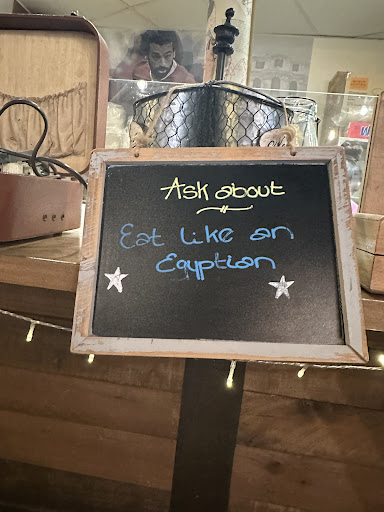 Ask about
Eat like an
Egyptian